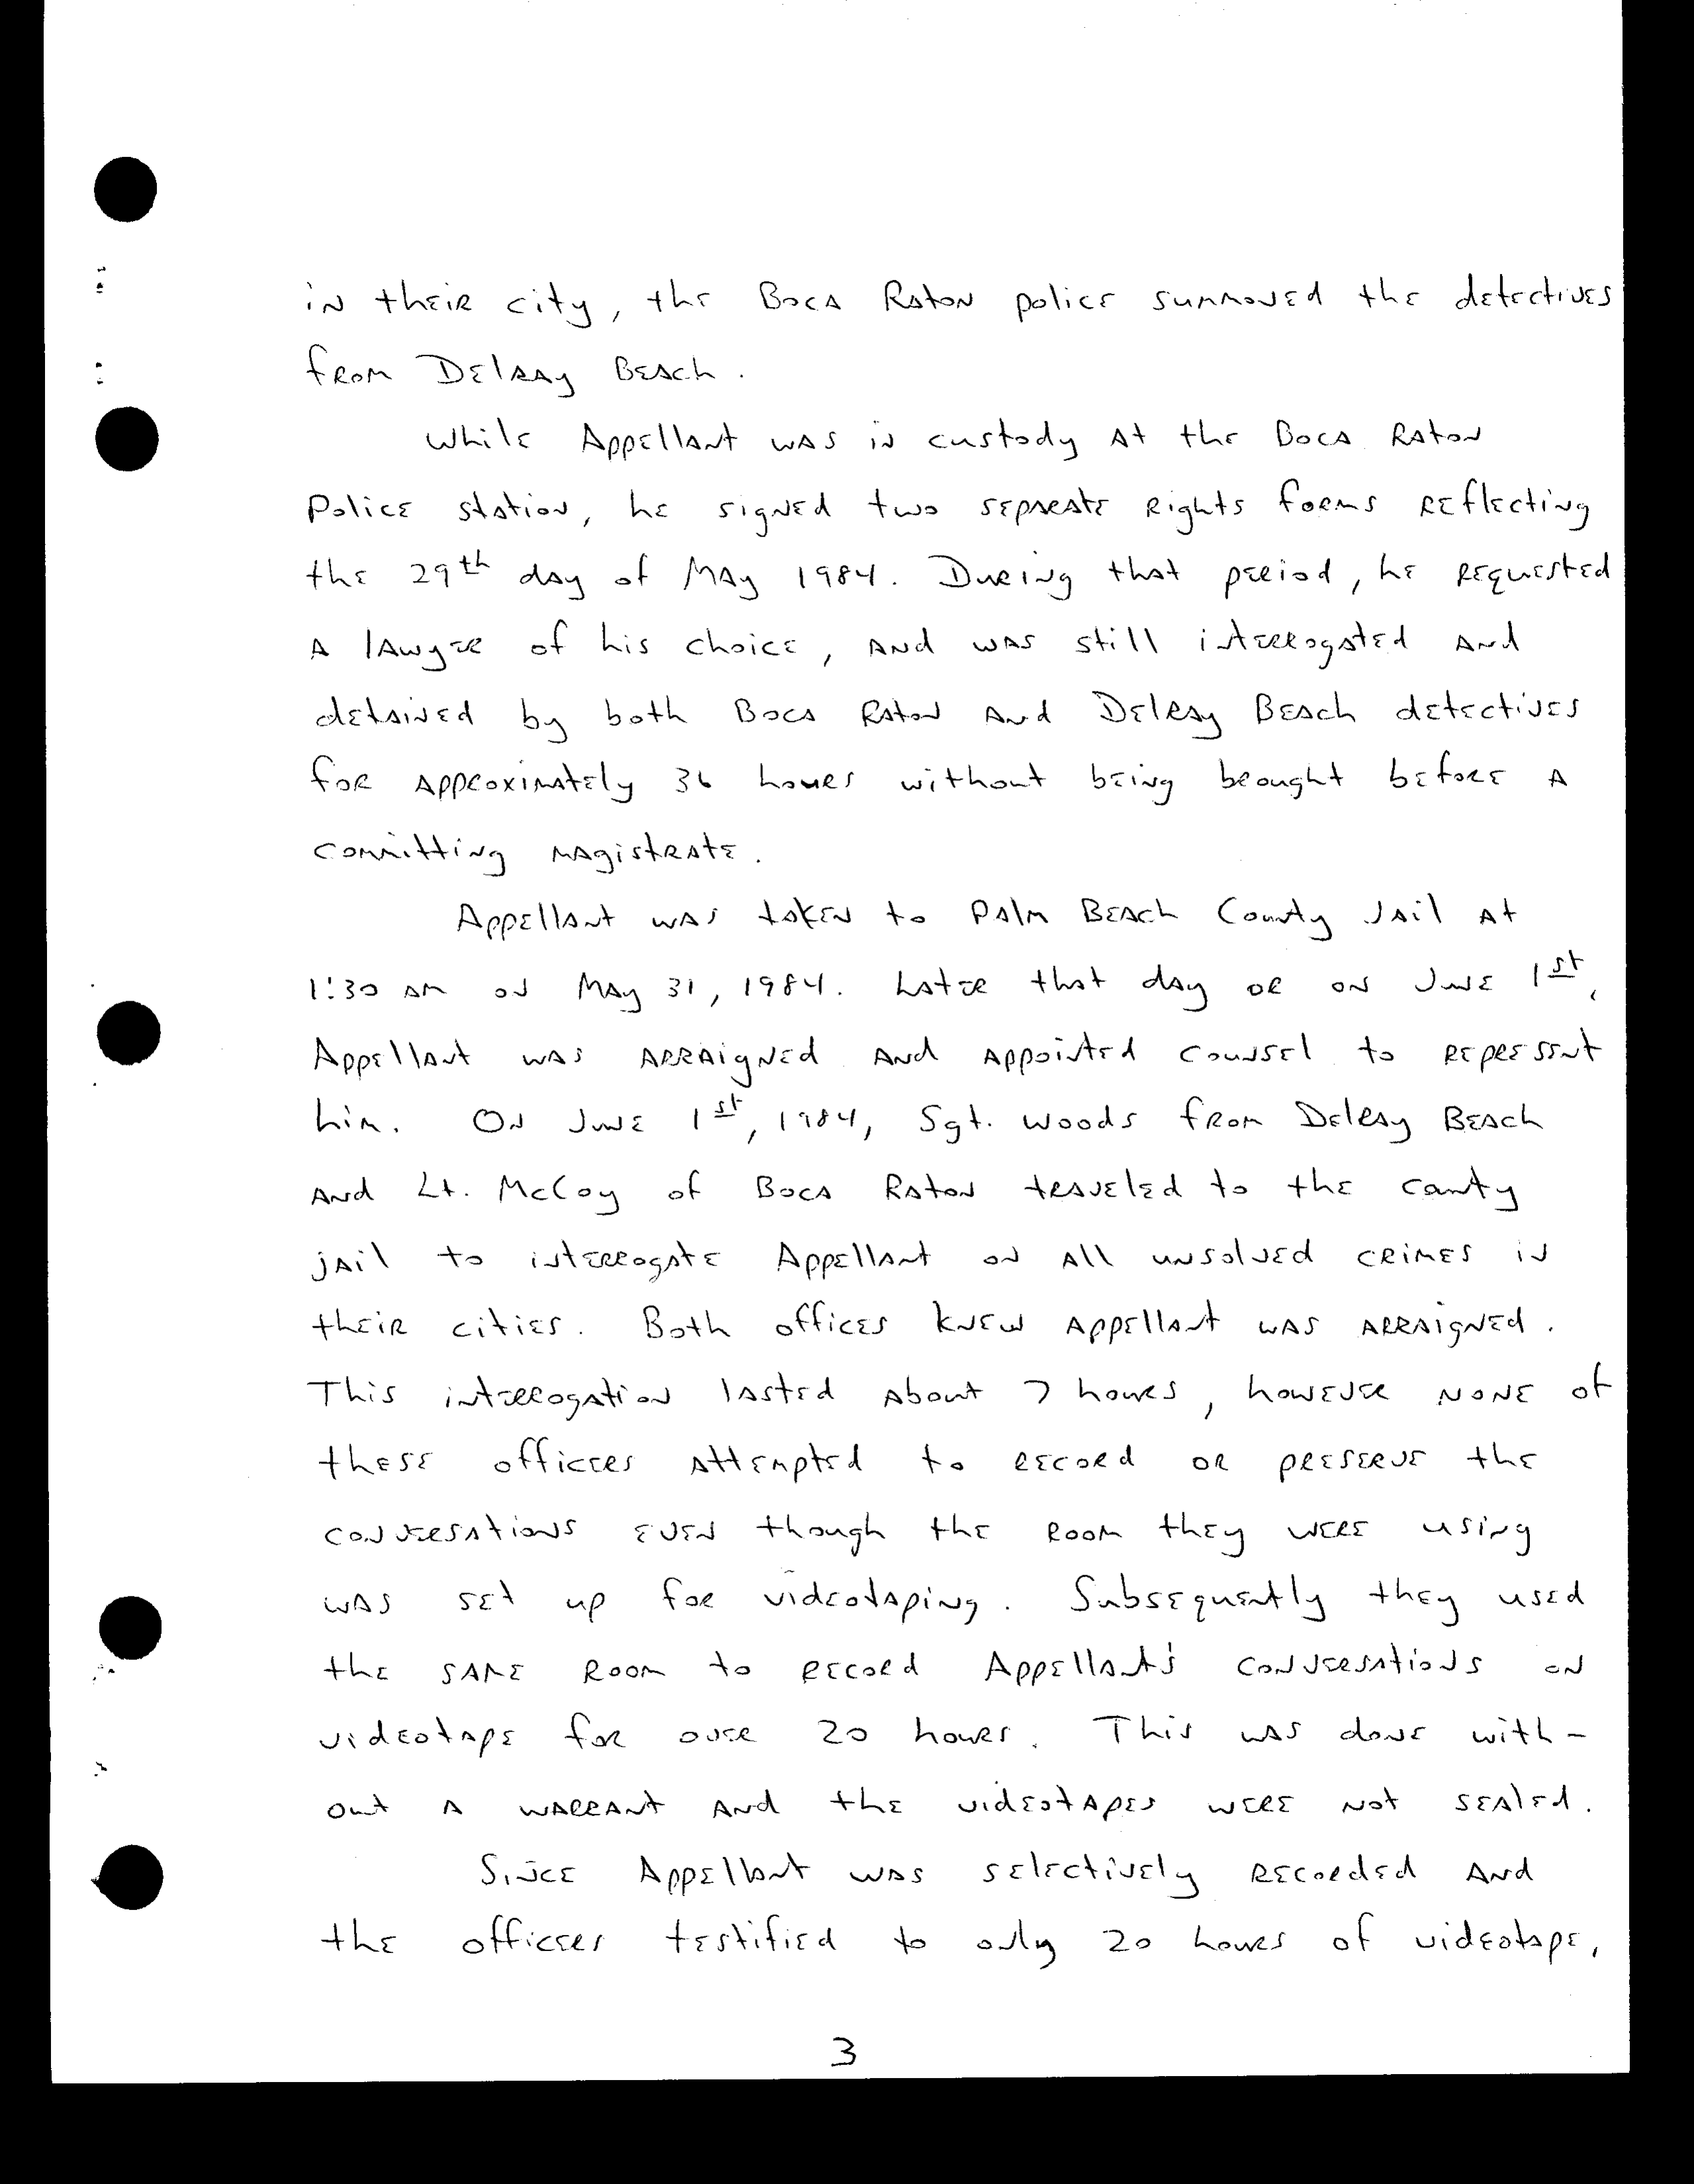 in their city, the Boca Raton police summoned the detectives
from Delray Beach.
While Appellant was in custody at the Boca Raton
Police station, he signed two separate rights forms reflecting
the 29th day of May 1984. During that period, he requested
a lawyer of his choice, and was still interrogated and
detained by both Boca Raton and Delray Beach detectives
for approximately 36 hours without being brought before a
committing magistrate.
Appellant was taken to Palm Beach County Jail at
1:30 am on May 31, 1984. Later that day or on June 1st,
Appellant was arraigned and appointed counsel to represent
him. On June 1st, 1984, Sgt. Woods from Delray Beach
and Lt. McCoy of Boca Raton traveled to the county
jail to interrogate Appellant on all unsolved crimes in
their cities. Both offices knew Appellant was arraigned.
This interrogation lasted about 7 hours, however none of
these officers attempted to record or preserve the
conversations even though the room they were using
was set up for videotaping. Subsequently they used
the same room to record Appellant's conversations on
videotape for over 20 hours. This was done with-
out a warrant and the videotapes were not sealed.
Since Appellant was selectively recorded and
the officers testified to only 20 hours of videotape,
3